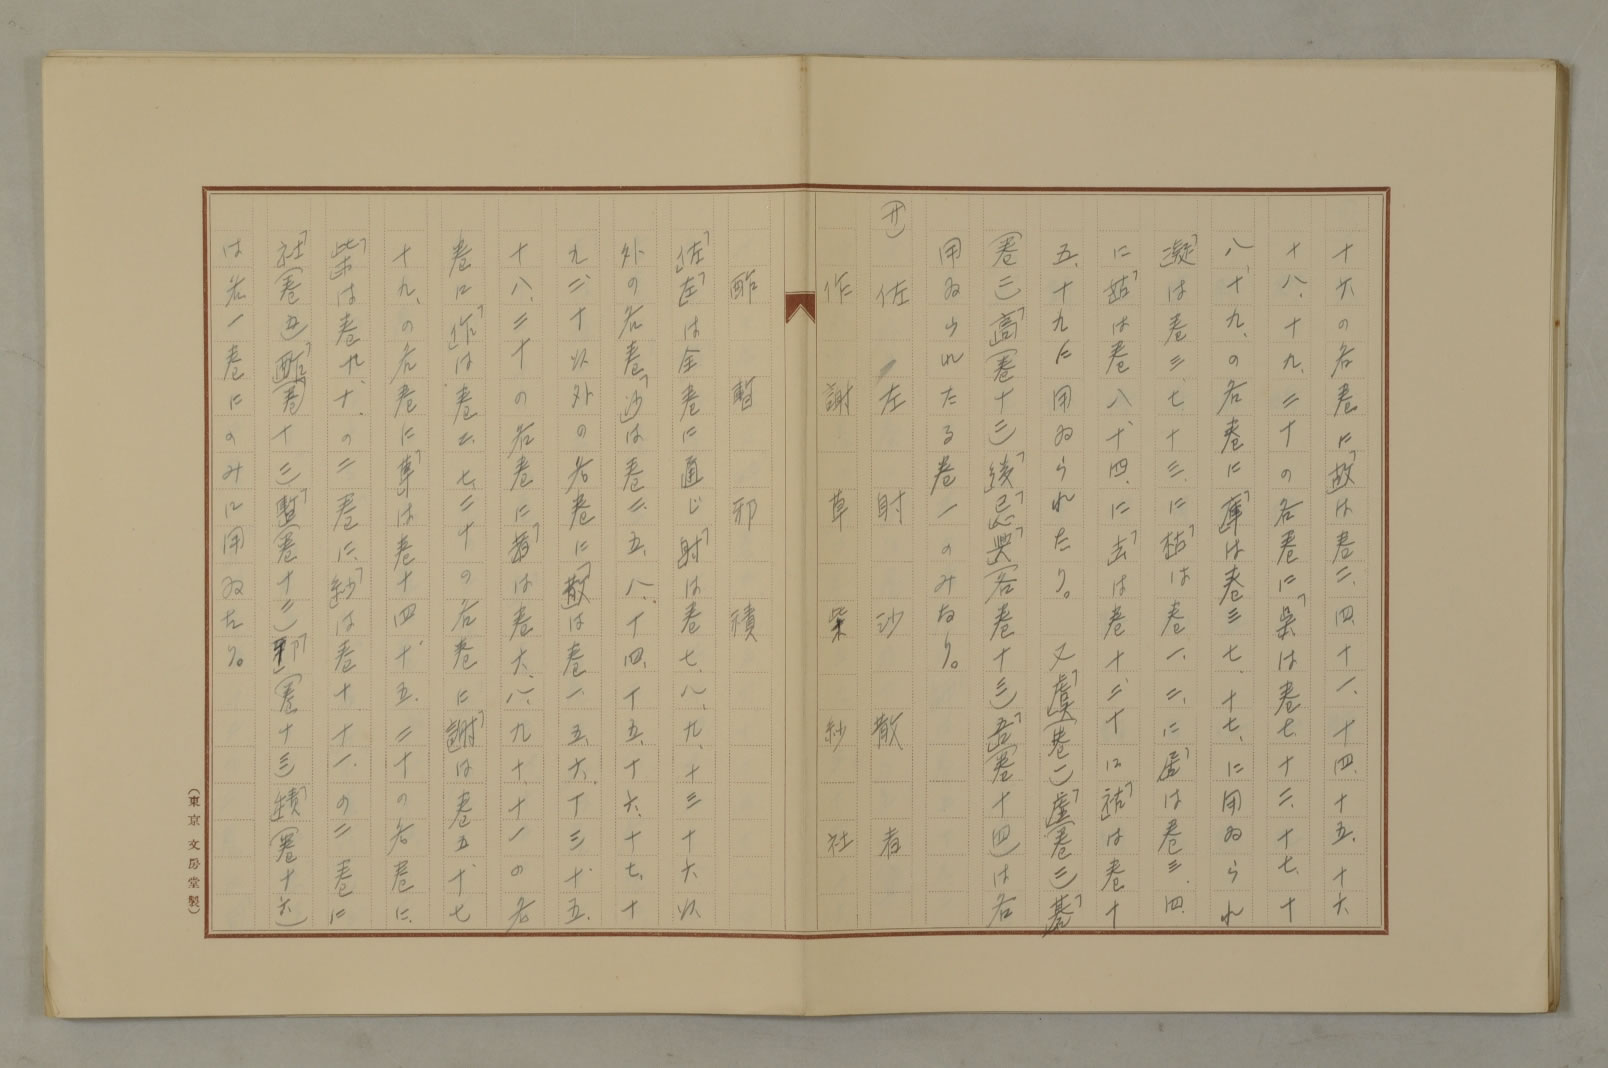 十六の各巻に「故」は巻二、四、十一、十四、十五、十六
十八、十九、二十の各巻に「呉」は巻七、十二、十七、十
八、十九、の各巻に「庫」は巻三、七、十七、に用ゐられ
「凝」は巻三、七、十三、に「枯」は巻一、二、に「居」は巻三、四、
に「故」は巻八、十四、に「去」は巻十二、十に「祜」は巻十
五、十九に用ゐられたり。 又「虞」(巻二)「虚」(巻三)「碁」
(巻三)「高」(巻十三)「後」「忌」「興」(各巻十三)「吾」(巻十四)は各
用ゐられたる巻一のみなり。
(サ) 佐 左 射 沙 散 者
作 謝 草 柴 紗 社
酢 暫 邪 積
「佐」「左」は全巻に通じ「射」は巻七、八、九、十三十六以
外の各巻、「沙」は巻二、五、八、十四、十五、十六、十七、十
九二十以外の各巻に「散」は巻一、五、六、十三、十五、
十八、二十の各巻に「者」は巻六、八、九十、十一の各
巻に「作」は巻二、七、二十の各巻に「謝」は巻五、十七
十九、の各巻に「草」は巻十四、十五、二十の各巻に、
「柴」は巻九、十、の二巻に、「紗」は巻十、十一、の二巻に
「社」(巻五)「酢」(巻十三)「暫」(巻十二)「邪」(巻十三)「積」(巻十六)
は各一巻にのみに用ゐたり。
(東京 文房堂製)